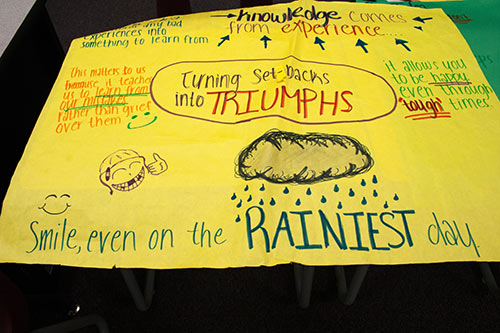 any bad
experiences into
something to learn from
Knowledge comes
from experience....
This matters to us
because it teaches
us to learn from
our mistakes
rather than grieve
over them.
Turning Set-backs
into TRIUMPHS
it allows you
to be happy
even through
"tough" times
Smile, even on the RAINIEST day.